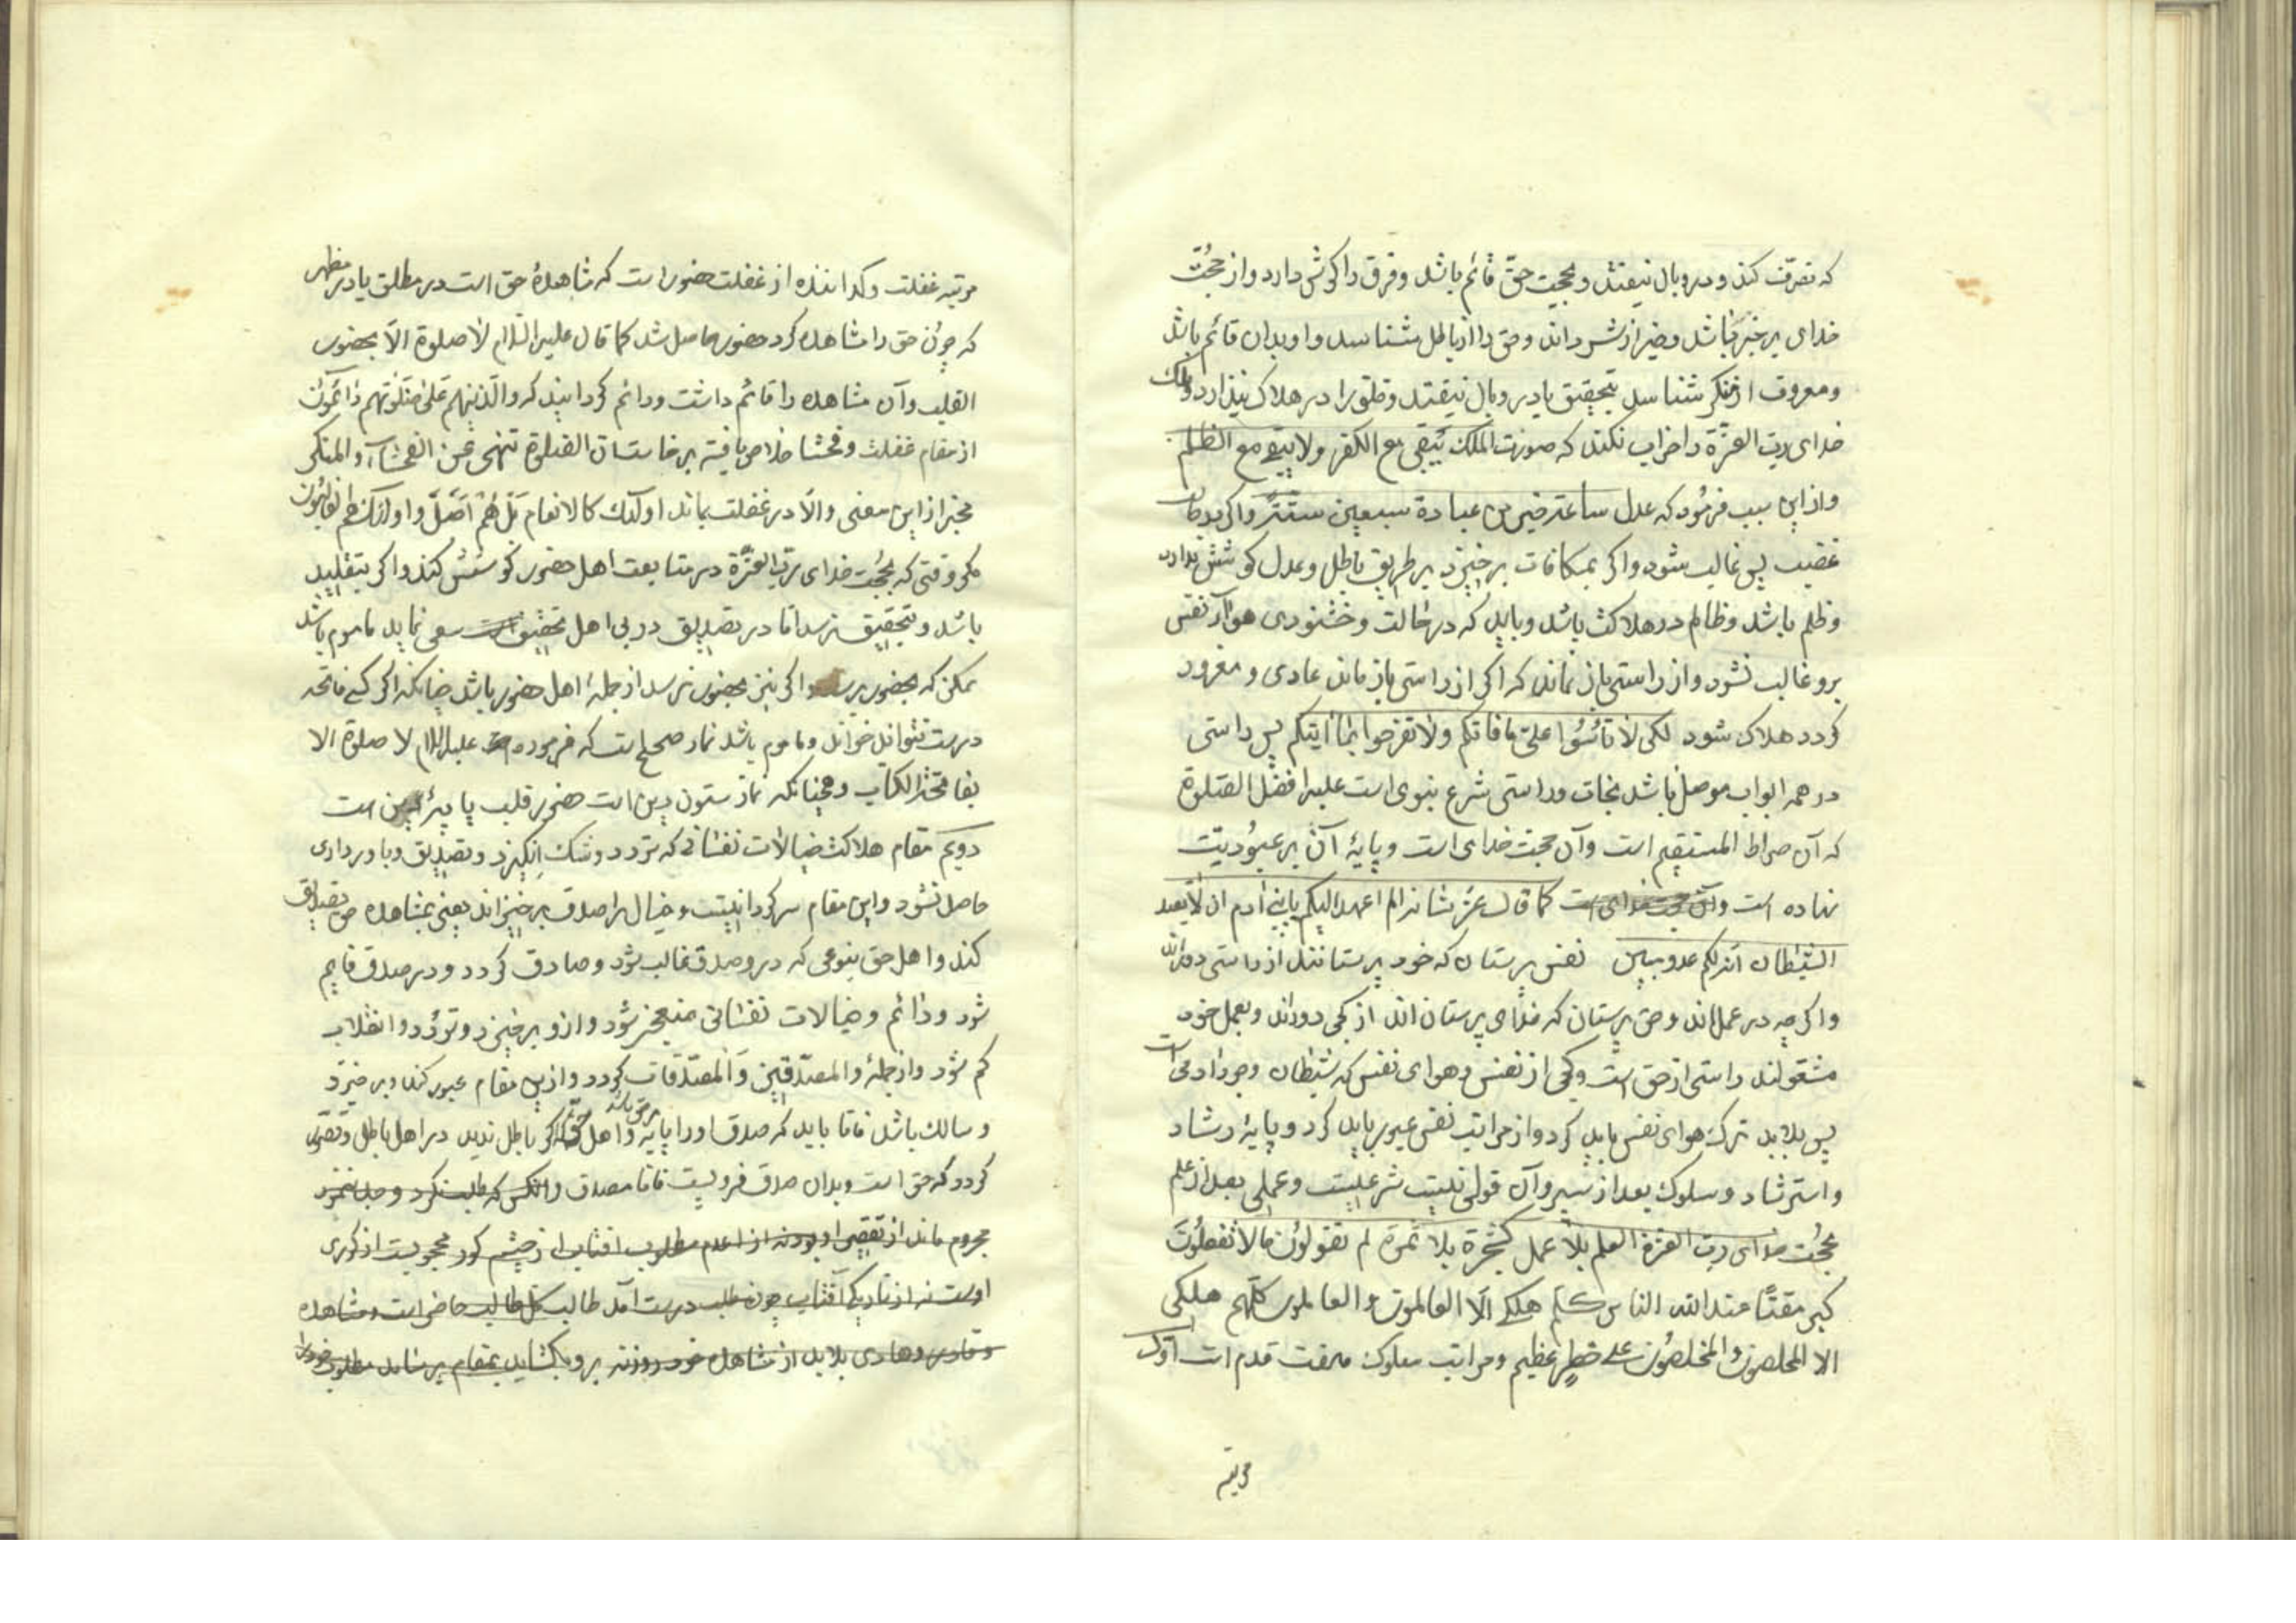 که تصرّف کند و در وبال نیفتد و بحجت حقّ قائم باشد و فرق را کوشش دارد و از حجّت
خدای بر خبر باشد و خیر از شر داند و حق را از باطل شناسد و او بدان قائم باشد
و معروف از منکر شناسد بتحقیق یا در وبال نیفتد و خلق را در هلاک نیندازد و ملک
خدای ربّ العزّة را خراب نکند که صورت الملک یبقی مع الکفر ولا یبقی مع الظلم
و از این سبب فرمود که عدل ساعة خیر من عبادة سبعین سنة و اگر بدو
غضب پس غالب شود و اگر بمکافات برخیزد بر طریق باطل و عدل کوشش ندارد
و ظلم باشد و ظالم در هلاکت باشد و باید که در حالت و خشنودی هوا و نفس
برو غالب نشود و از راستی باز نماند که اگر از راستی باز ماند عادی و مغرور
گردد هلاک شود لکی لا تأسوا علی ما فاتکم ولا تفرحوا بما آتیکم پس راستی
در همه ابواب موصل باشد نجات و راستی شرع نبوی است علیه افضل الصلوة
که آن صراط المستقیم است و آن حجت خدای است و پایهٔ آن بر عبودیّت
نهاده است و آن حجت خدای است کما قال عزّ شانه الم اعهد الیکم یا بنی آدم ان لا تعبد
الشیطان انه لکم عدو مبین نفس پرستان که خود پرستانند از راستی دوراند
و اگرچه در عمل‌اند و حق پرستان که خدای پرستان اند از کجی دوراند و بعمل خود
مشغولند راستی از حق است و کجی از نفس و هوای نفس که شیطان وجود آدمی است
پس بلابد ترک هوای نفس باید کرد و از مراتب نفس عبور باید کرد و پایهٔ رشاد
و استرشاد و سلوک بعد از سیر و آن قولی نیست شرعیست و عملی بعد از علم
بحجّت خدای ربّ العزة العلم بلا عمل کشجرة بلا ثمرة لم تقولون ما لا تفعلون
کبر مقتًا عند الله الناس کلهم هلکی الّا العالمون والعالمون کلهم هلکی
الا المخلصون والمخلصون علی خطر عظیم و مراتب سلوک هفت قدم است اوّل
مرتبه
مرتبه غفلت و گذرانیده از غفلت حضور است که مشاهدهٔ حق است در مطلق یا در مظهر
که چون حق را مشاهده کرد حضور حاصل شد کما قال علیه السلام لا صلوة الّا بحضور
القلب و آن مشاهده را قائم داشت و دائم گردانید که والّذینهم علی صلوتهم دائمون
از مقام غفلت و فحشا خلاص یافته برخاست ان الصلوة تنهی عن الفحشاء والمنکر
مخبر از این معنی والّا در غفلت بماند اولئک کالانعام بل هم اضلّ واولئک هم الغافلون
مگر وقتی که بحجت خدای ربّ العزّة در متابعت اهل حضور کوشش کند و اگر بتقلید
باشد و بتحقیق نرسد اما در تصدیق در پی اهل تحقیق است سعی نماید ماموم باشد
ممکن که بحضور برسد و اگر نیز بحضور نرسد از جمله اهل حضور باشد چنانکه اگر کسی فاتحه
درست نتواند خواند و ماموم باشد نماز صحیح است که فرموده علیه السلام لا صلوة الا
بفاتحة الکتاب و همچنانکه نماز ستون دین است حضور قلب پایهٔ دین است
دویم مقام هلاکت خیالات نفسانی که تردد و شک انگیزد و تصدیق و باورداری
حاصل نشود و این مقام سرگردانیست و خیال را صدق برخیزاند یعنی بمشاهده حق تصدیق
کند و اهل حق بنوعی که در و صدق غالب شود و صادق گردد و در صدق قایم
شود و دائم و خیالات نفسانی شود و ازو برخیزد و تردد و انقلاب
کم شود و از جملهٔ والمصدّقین والمصدّقات گردد و ازین مقام عبور کند و برخیزد
و سالک باشد فاما باید که صدق او را پایه بر حق باشد و اهل حق که اگر باطل ندید در اهل باطل و
گردد که حق است و بدان صدق فرو نیست فاما مصدق و آنکس که طلب نکرد و جد ننمود
محروم ماند از تقصیر او بود نه از عدم مطلوب آفتاب از چشم کور محجوبست از کوری
اوست نه از تاریکی آفتاب چون طلب درست آمد طالب کل طالب حاضر است و مشاهده
و قادر و هادی بلابد از مشاهده خود روزنه برو بگشاید بمقام برساند مطلوب خود را